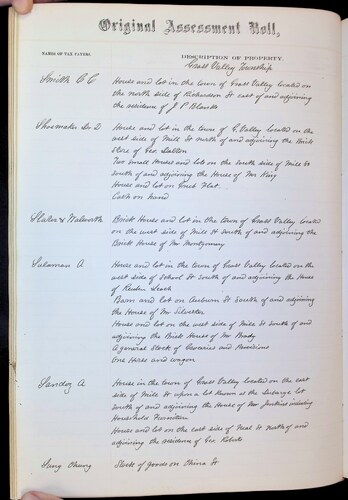 Original Assessment Roll,
NAMES OF TAX PAYERS.
DESCRIPTION OF PROPERTY.
Grass Valley Township
Smith C C
House and lot in the town of Grass Valley located on
the north side of Richardson St east of and adjoining
the residence of J P Blanks
Shoemaker Lo D
House and lot in the town of G. Valley located on the
west side of Mill St north of and adjoining the Brick
Store of Geo. Dalton
Two small Houses and lots on the south side of Mill St
south of and adjoining the House of Mr King
House and lot on Flat.
Cash on hand
Slater & Walworth
Brick House and lot in the town of Grass Valley located
on the west side of Mill St south of and adjoining the
Brick House of Mr Montgomery
Salaman A
House and lot in the town of Grass Valley located on the
west side of School St south of and adjoining the House
of Reuben Leach
Barn and lot on Auburn St south of and adjoining
the House of Mr Silvester
House and lot on the west side of Mill St south of and
adjoining the Brick House of Mr Brady
A general Stock of Groceries and Provisions
One Horse and wagon
Sandoz A
House in the town of Grass Valley located on the east
side of Mill St upon a lot known as the lot
south of and adjoining the House of Mr Jenkins including
Household Furniture
House and lot on the east side of Neal St north of and
adjoining the residence of Geo. Roberts
Sang Chung
Stock of goods on China St